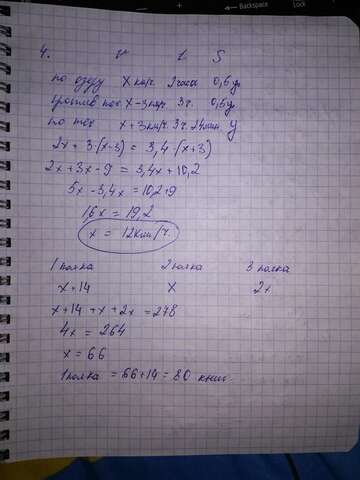 Backspace
Loc
4. v t S
по озеру x км/ч 2 часа 0,6y
против x-3км/ч 3ч. 0,6y
по теч x+3км/ч 3ч.24мин. y
2x + 3·(x-3) = 3,4·(x+3)
2x + 3x - 9 = 3,4x + 10,2
5x - 3,4x = 10,2+9
16x = 19,2
x = 12км/ч.
1 полка 2 полка 3 полка
x+14 x 2x
x+14 +x +2x =278
4x = 264
x = 66
1полка = 66+14 = 80 книг